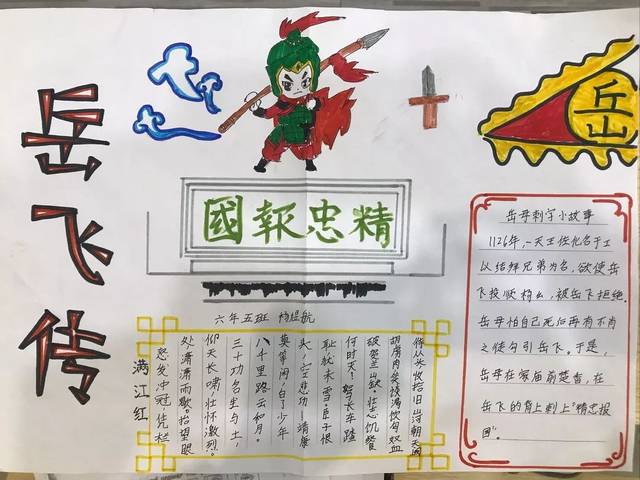 岳飞传
岳
精忠報國
六年五班
满江红
怒发冲冠,凭栏
处潇潇雨歇.抬望眼
仰天长啸,壮怀激烈.
三十功名尘与土,
八千里路云和月.
莫等闲,白了少年
头,空悲切.靖康
耻犹未雪.臣子恨
何时灭!驾长车踏
破贺兰山缺.壮志饥餐
胡虏肉笑谈渴饮匈奴血
待从头收拾旧山河朝天阙
岳母刺字小故事
1126年,一天王佐化名于工
以结拜兄弟为名,欲使岳
飞投顺杨么,被岳飞拒绝.
岳母怕自己死后再有不肖
之徒勾引岳飞.于是,
岳母在家庙前焚香,在
岳飞的背上刺上"精忠报
国".